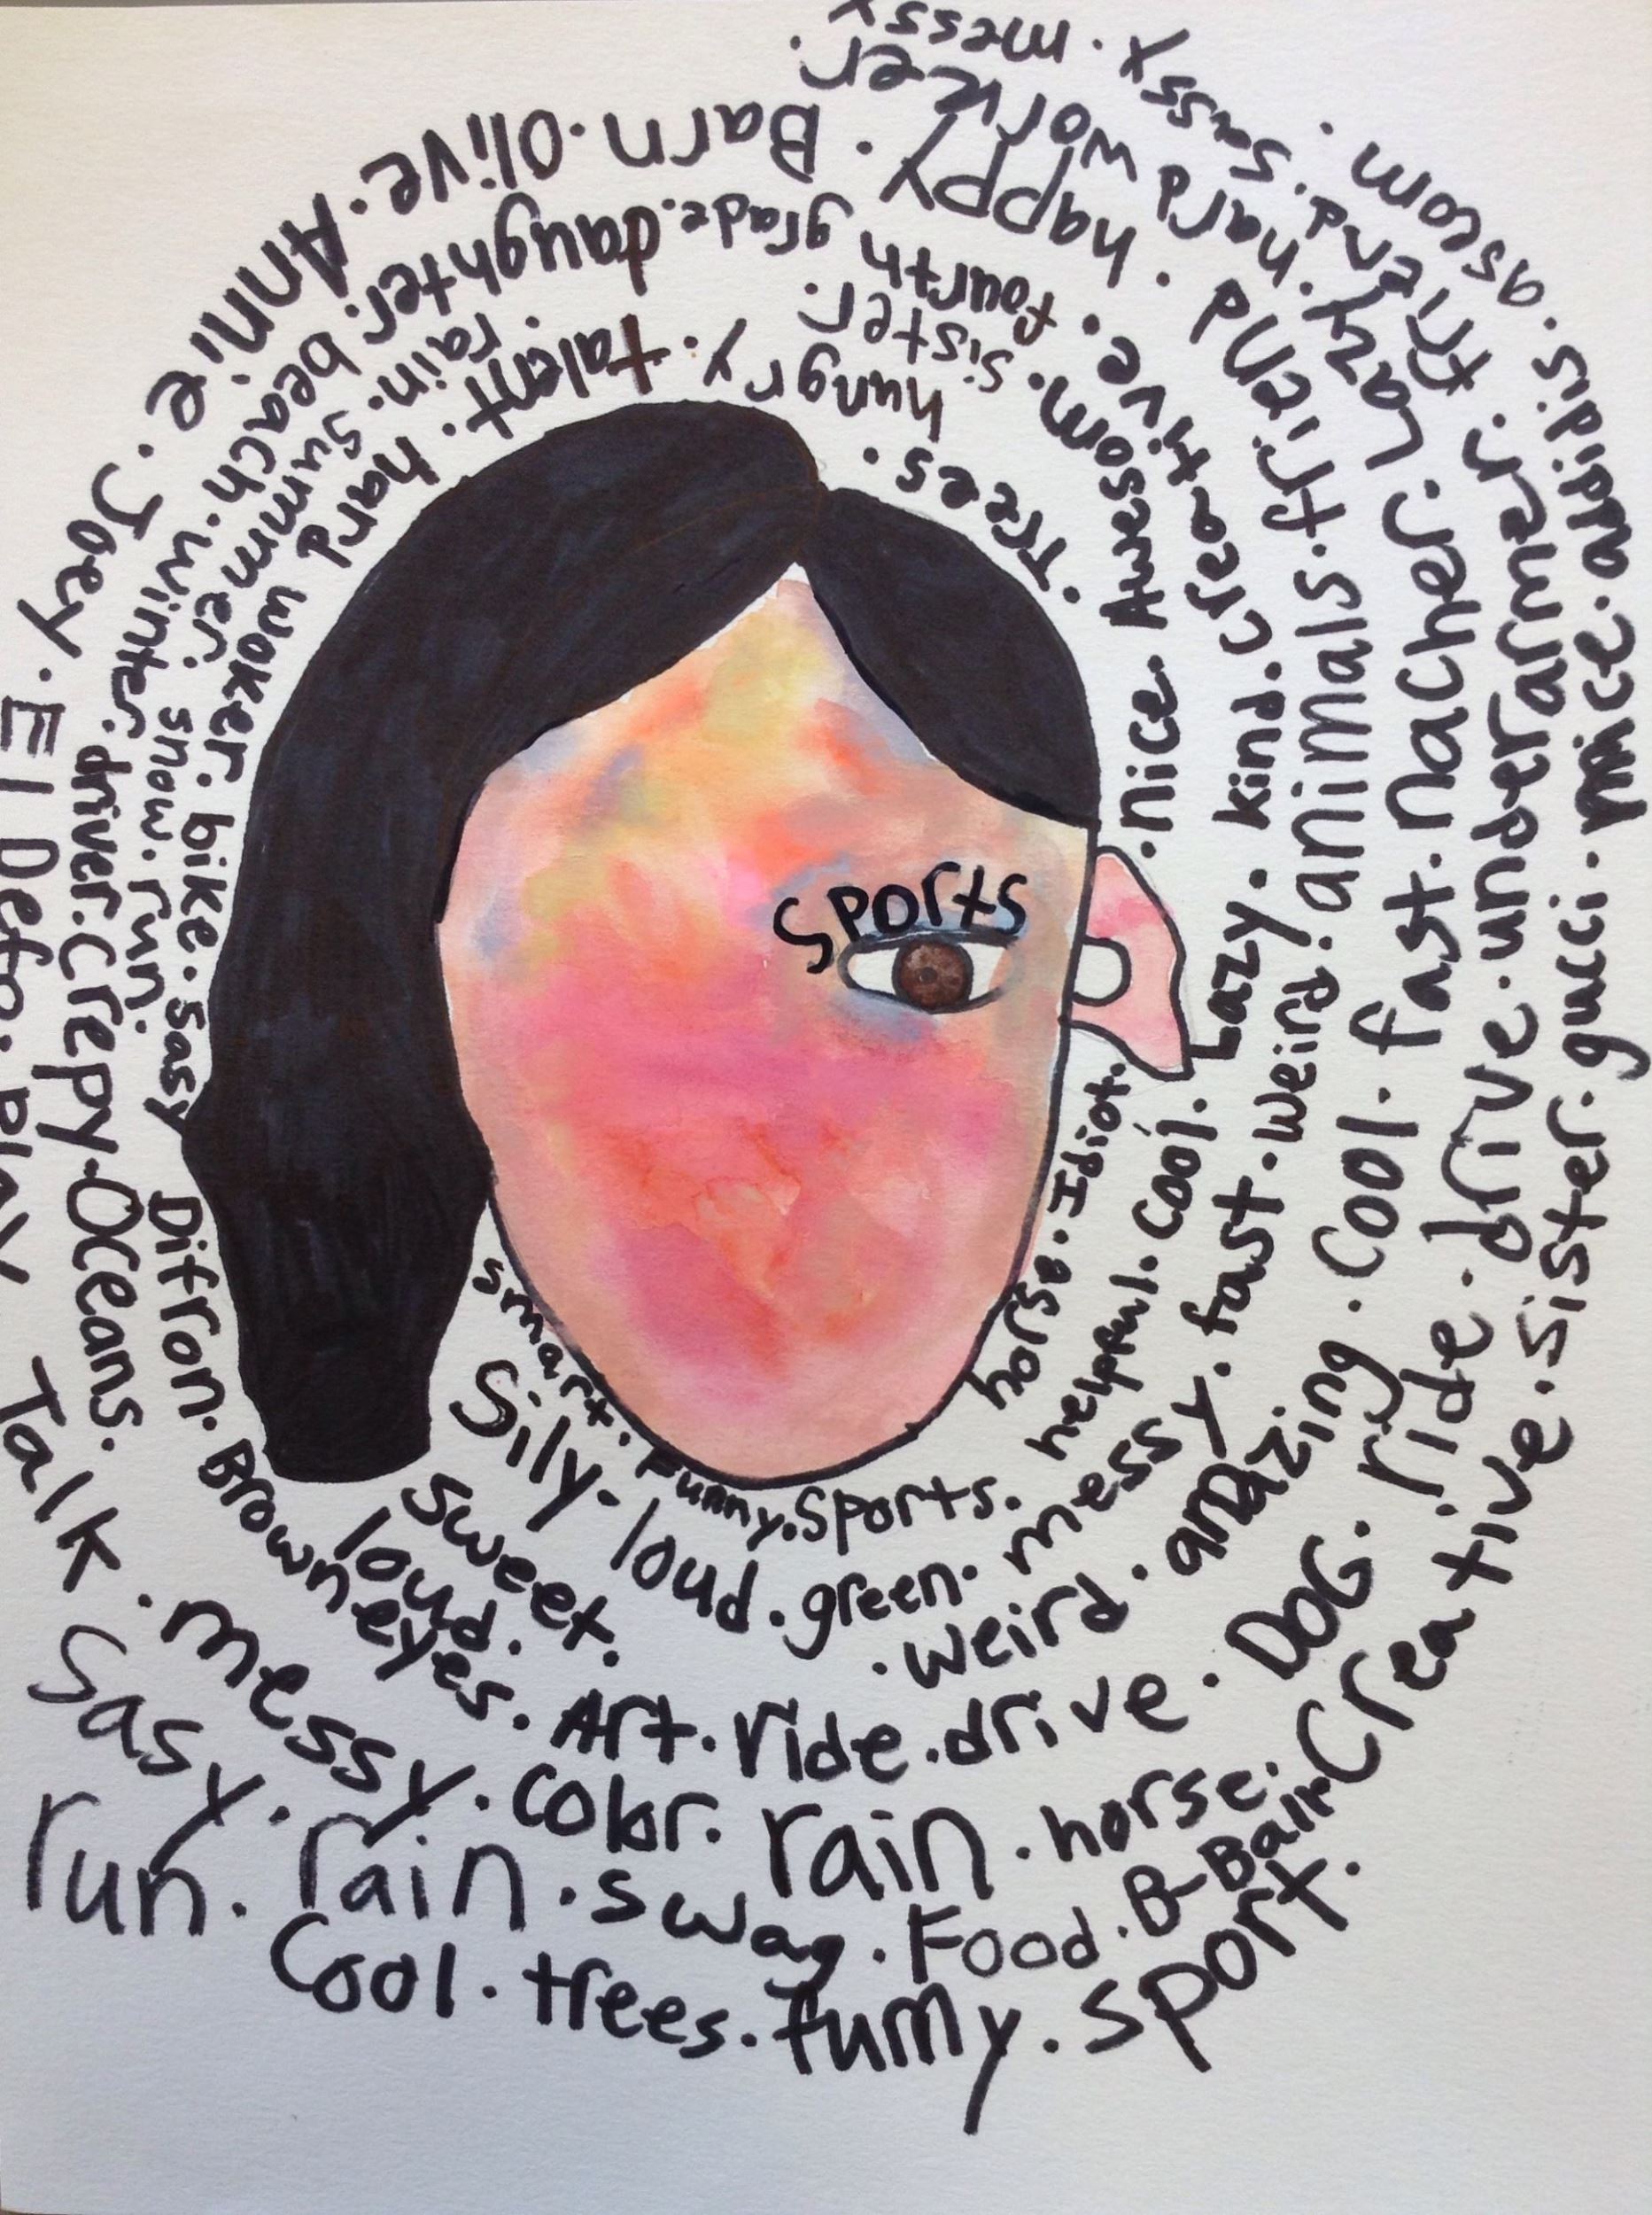 Sports
smart. Funny. Sports.
horse. Idiot.
. nice. Awesome. sister.
. Trees. hungry. talent. hard woker. bike. sasy
Difron. Brown eyes. Art. ride. drive. DOG. ride. drive. underarmer. friend. Sassy. messy
Sily. loud. green. messy. fast. weird. animals. friend. happy. Barn. olive. Annie. Joey. El Defo.
sweet.
loud.
helpful. Cool. Lazy. kind. creative. fourth grade. daughter. beach. winter. driver. crepy. Oceans.
rain. summer. snow. run.
. weird. amazing. Cool. fast. nacher. Lazy. hard worker.
Talk. messy. color. rain. horse.
Creative. sister. gucci. mice. adidis. asecom.
Sasy. rain. swag. Food. B-Bain
run.
Cool. trees. funny. sport.